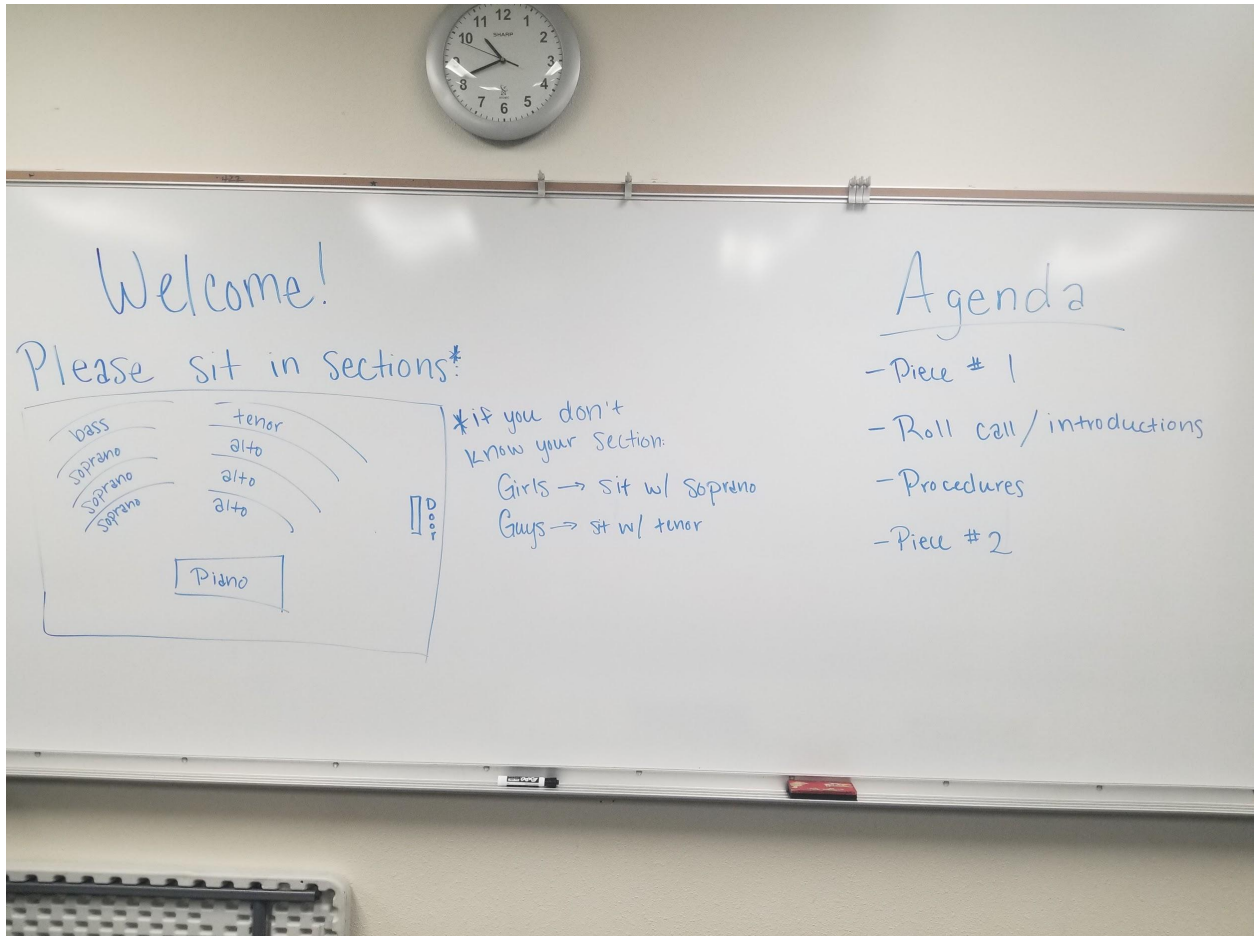 12
11
1
10
2
SHARP
9
3
8
4
7
5
6
Welcome!
Please sit in sections*:
bass
soprano
soprano
soprano
tenor
alto
alto
alto
Door
Piano
*if you don't
know your section:
Girls → sit w/ soprano
Guys → sit w/ tenor
Agenda
- Piece # 1
- Roll call/introductions
- Procedures
- Piece # 2